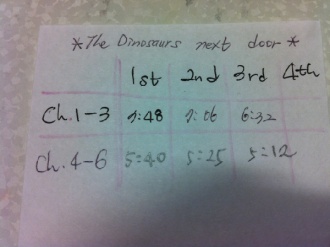 *The Dinosaurs next door*
1st 2nd 3rd 4th
Ch.1-3 7:48 6:32
Ch.4-6 5:40 5:25 5:12